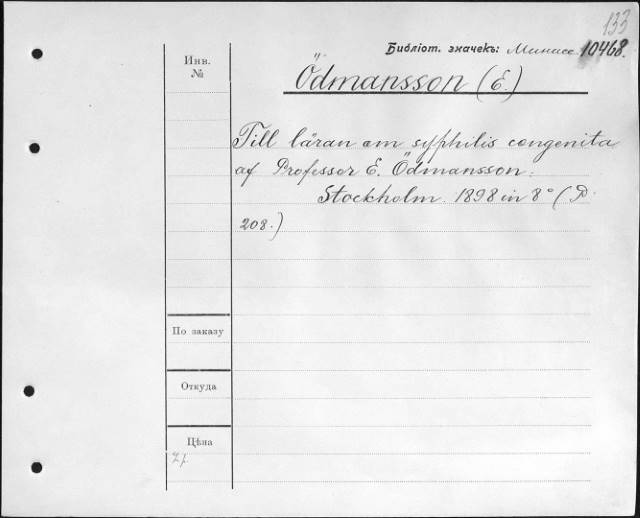 133
Библіот. значекъ: Минасс. 10468.
Инв.
№
Ödmansson (E.)
Till läran om syphilis congenita
af Professor E. Ödmansson.
Stockholm. 1898 in 8° (P.
208.)
По заказу
Откуда
Цѣна